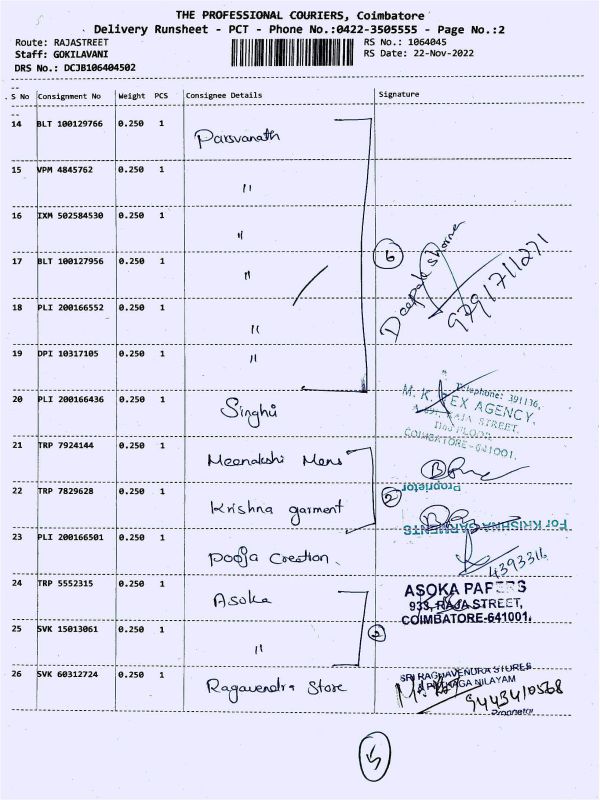 THE PROFESSIONAL COURIERS, Coimbatore
Delivery Runsheet - PCT - Phone No.:0422-3505555 - Page No.:2
Route: RAJASTREET
RS No.: 1064045
Staff: GOKILAVANI
RS Date: 22-Nov-2022
DRS No.: DCJB106404502
S No Consignment No Weight PCS Consignee Details Signature
14 BLT 100129766 0.250 1 Parsvanath
15 VPM 4845762 0.250 1 "
16 IXM 502584530 0.250 1 "
17 BLT 100127956 0.250 1 " 6 Deepak Sharma 9791711271
18 PLI 200166552 0.250 1 "
19 DPI 10317105 0.250 1 "
20 PLI 200166436 0.250 1 Singhvi
Telephone: 391136,
M. K. TEX AGENCY,
RAJA STREET,
IInd FLOOR,
COIMBATORE-641001.
21 TRP 7924144 0.250 1 Meenakshi Mens
Proprietor
22 TRP 7829628 0.250 1 Krishna garment 2
For KRISHNA GARMENTS
23 PLI 200166501 0.250 1 Pooja Creation. 4393316
24 TRP 5552315 0.250 1 Asoka
ASOKA PAPERS
933, RAJA STREET,
COIMBATORE-641001.
25 SVK 15013061 0.250 1 " 2
26 SVK 60312724 0.250 1 Ragavendra Store
SRI RAGHAVENDRA STORES
NILAYAM
9443410568
Proprietor
5